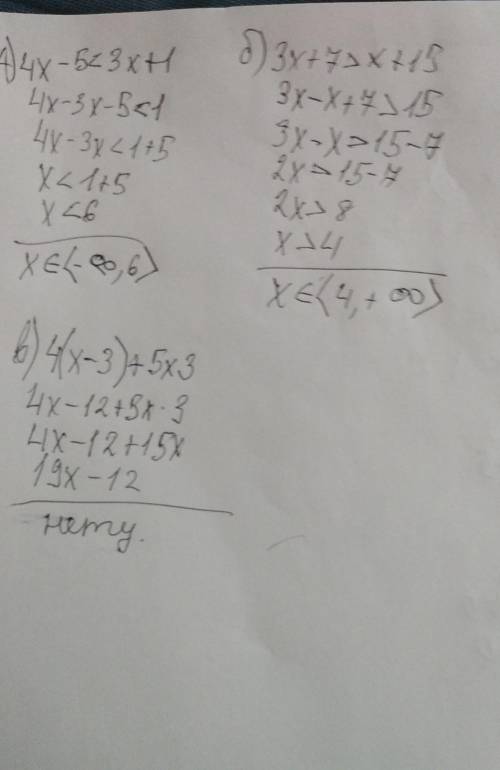 а) 4x-5<3x+1
4x-3x-5<1
4x-3x<1+5
x<1+5
x<6
x∈⟨-∞,6⟩
б) 3x+7>x+15
3x-x+7>15
3x-x>15-7
2x>15-7
2x>8
x>4
x∈⟨4,+∞⟩
в) 4(x-3)+5x3
4x-12+5x·3
4x-12+15x
19x-12
нету.